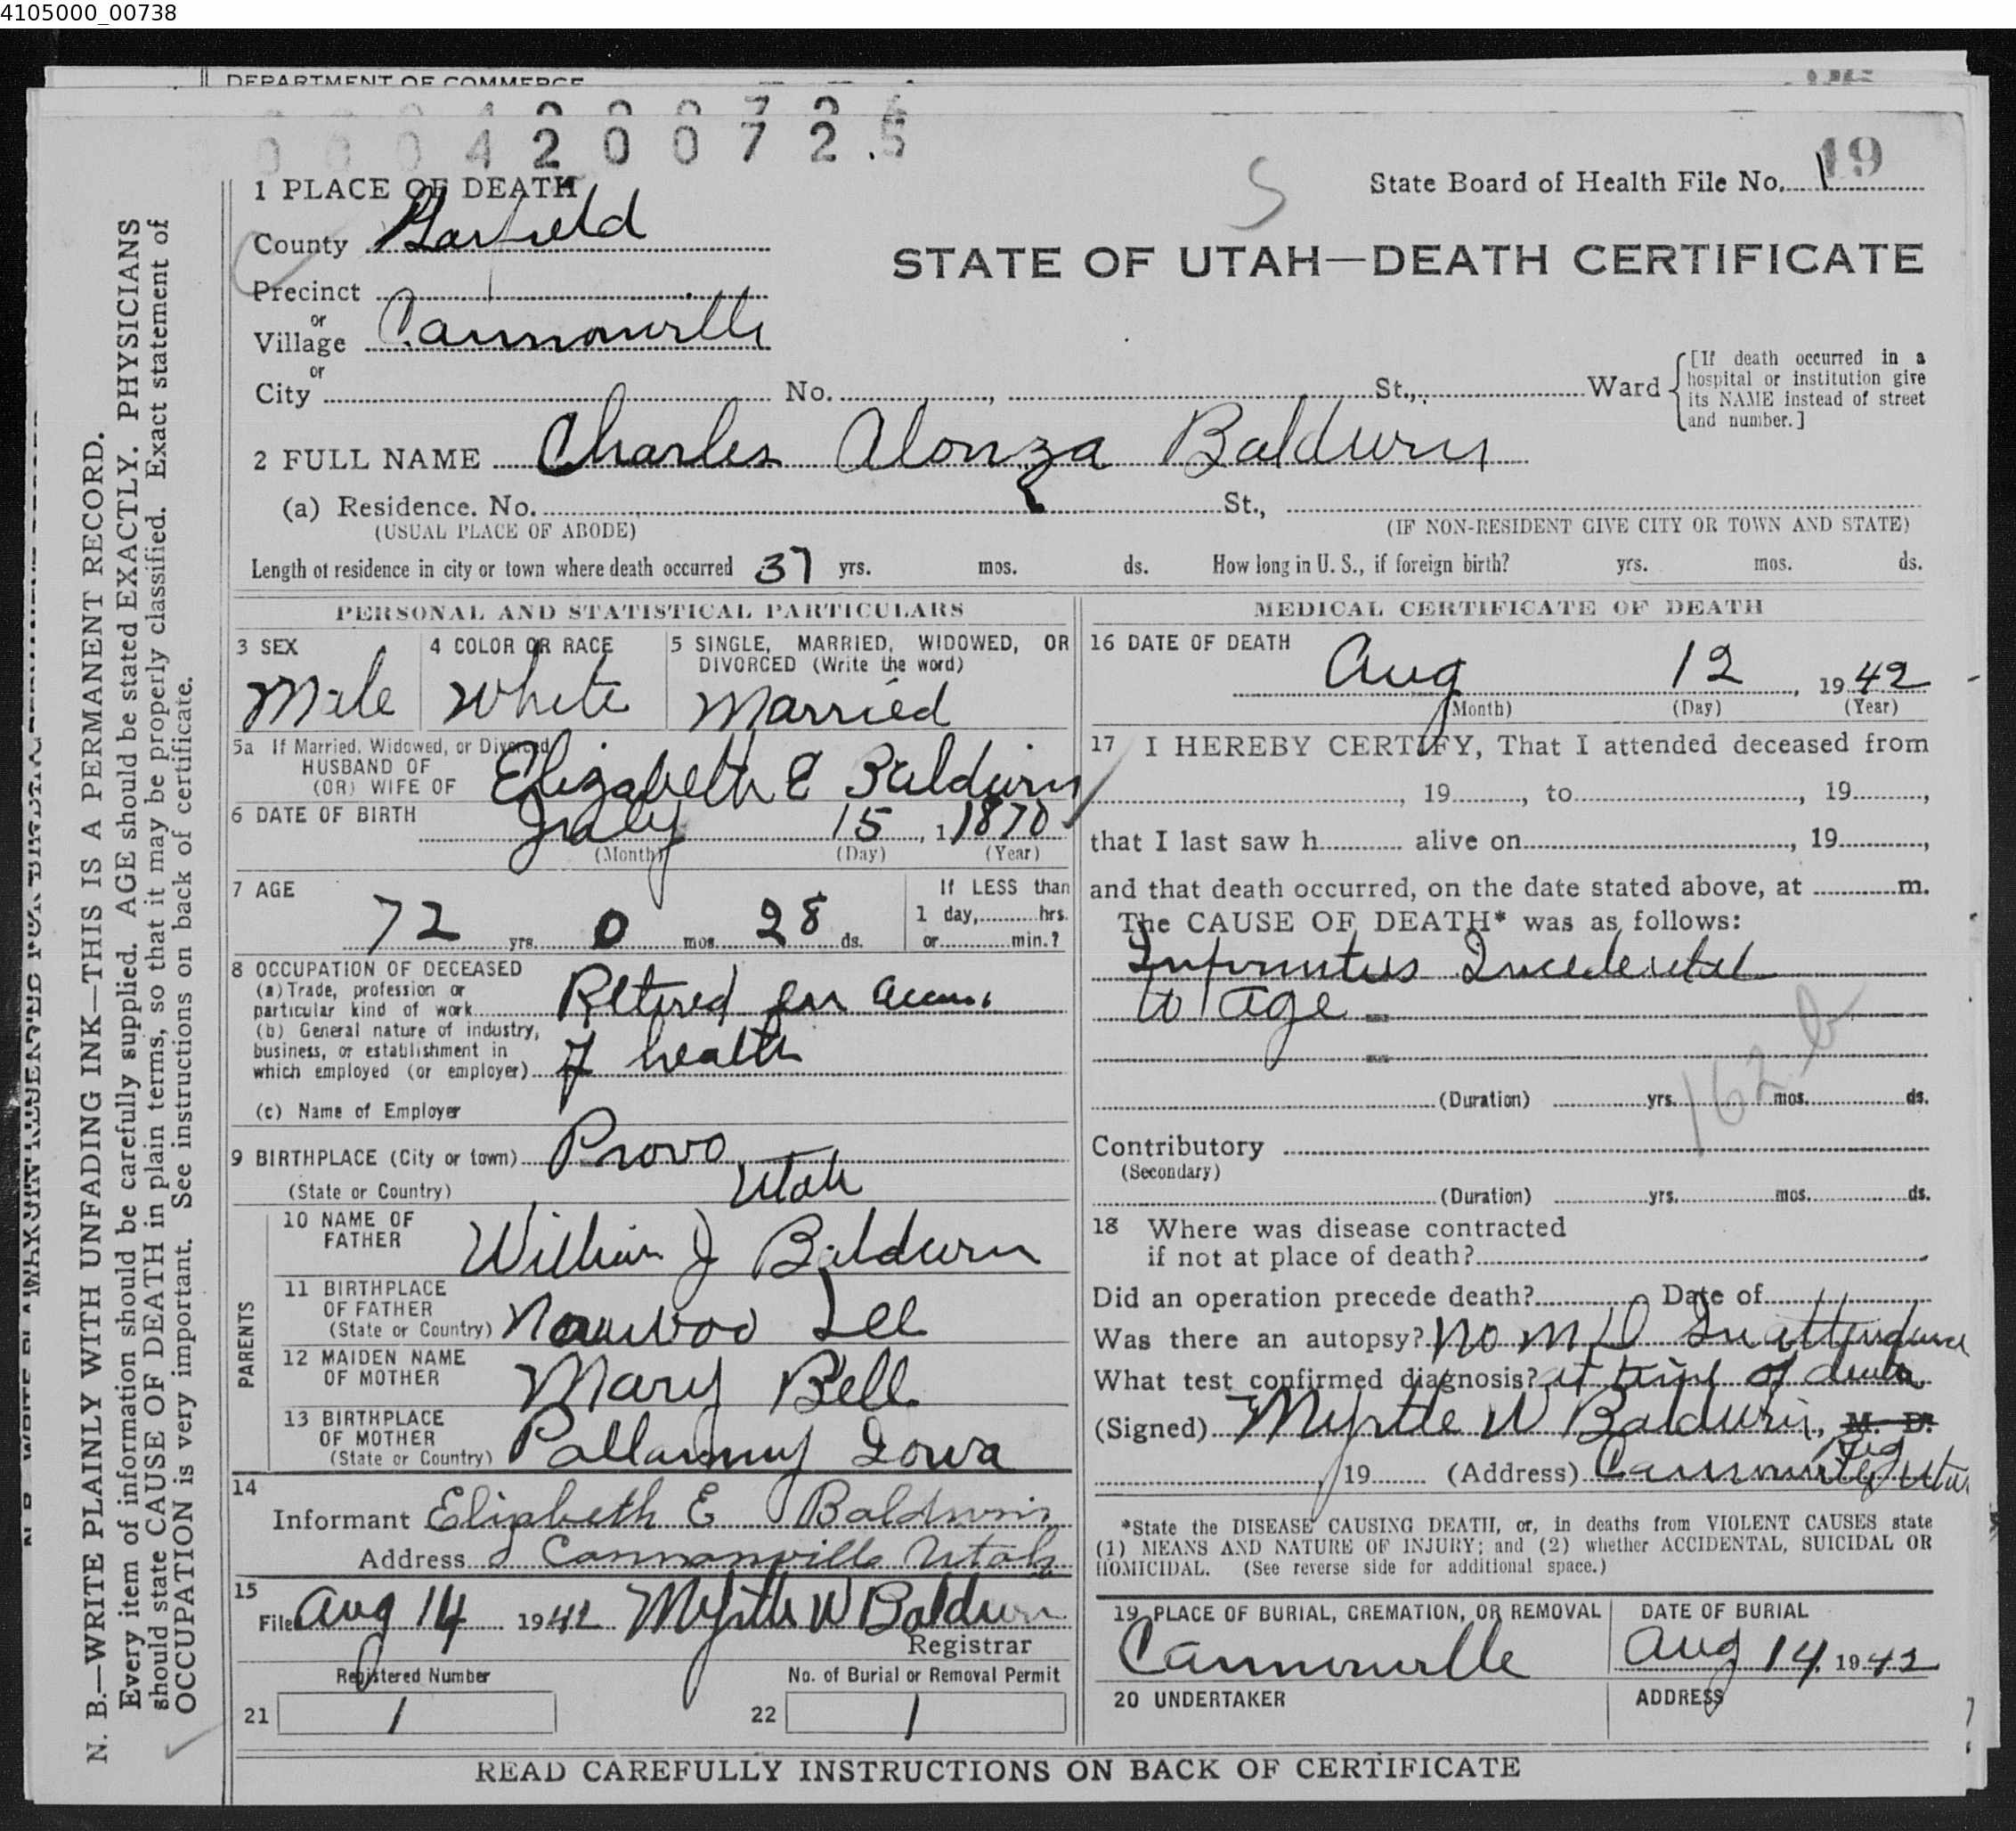 4105000_00738
DEPARTMENT OF COMMERCE
0004200725
1 PLACE OF DEATH
State Board of Health File No. 119
S
County Garfield
STATE OF UTAH—DEATH CERTIFICATE
Precinct
or
Village Cannonville
or
City No. , St., Ward [If death occurred in a hospital or institution give its NAME instead of street and number.]
2 FULL NAME Charles Alonza Baldwin
(a) Residence. No. St.,
(USUAL PLACE OF ABODE) (IF NON-RESIDENT GIVE CITY OR TOWN AND STATE)
Length of residence in city or town where death occurred 37 yrs. mos. ds. How long in U. S., if foreign birth? yrs. mos. ds.
PERSONAL AND STATISTICAL PARTICULARS
3 SEX Male
4 COLOR OR RACE White
5 SINGLE, MARRIED, WIDOWED, OR DIVORCED (Write the word) Married
5a If Married, Widowed, or Divorced
HUSBAND OF
(OR) WIFE OF Elizabeth E Baldwin
6 DATE OF BIRTH July 15, 1 1870
(Month) (Day) (Year)
7 AGE 72 yrs. 0 mos. 28 ds.
If LESS than
1 day, hrs.
or min.?
8 OCCUPATION OF DECEASED
(a) Trade, profession or
particular kind of work Retired on
(b) General nature of industry,
business, or establishment in
which employed (or employer) of health
(c) Name of Employer
9 BIRTHPLACE (City or town) Provo
(State or Country) Utah
PARENTS
10 NAME OF FATHER William J Baldwin
11 BIRTHPLACE
OF FATHER
(State or Country)
12 MAIDEN NAME
OF MOTHER Mary Bell
13 BIRTHPLACE
OF MOTHER
(State or Country) Iowa
14
Informant Elizabeth E Baldwin
Address Cannonville Utah
15
Filed Aug 14 1942 Myrtle W Baldwin
Registrar
Registered Number No. of Burial or Removal Permit
21 1 22 1
MEDICAL CERTIFICATE OF DEATH
16 DATE OF DEATH
Aug 12, 1942
(Month) (Day) (Year)
17 I HEREBY CERTIFY, That I attended deceased from
, 19 , to , 19 ,
that I last saw h alive on , 19 ,
and that death occurred, on the date stated above, at m.
The CAUSE OF DEATH* was as follows:
Incidental
to age
162 b
(Duration) yrs. mos. ds.
Contributory
(Secondary)
(Duration) yrs. mos. ds.
18 Where was disease contracted
if not at place of death?
Did an operation precede death? Date of
Was there an autopsy? No M D In attendance
What test confirmed diagnosis? at time of death
(Signed) Myrtle W Baldwin, M. D.
Reg
19 (Address) Cannonville, Utah
*State the DISEASE CAUSING DEATH, or, in deaths from VIOLENT CAUSES state
(1) MEANS AND NATURE OF INJURY; and (2) whether ACCIDENTAL, SUICIDAL OR
HOMICIDAL. (See reverse side for additional space.)
19 PLACE OF BURIAL, CREMATION, OR REMOVAL Cannonville
DATE OF BURIAL Aug 14, 1942
20 UNDERTAKER ADDRESS
READ CAREFULLY INSTRUCTIONS ON BACK OF CERTIFICATE
N. B.—WRITE PLAINLY WITH UNFADING INK—THIS IS A PERMANENT RECORD.
Every item of information should be carefully supplied. AGE should be stated EXACTLY. PHYSICIANS
should state CAUSE OF DEATH in plain terms, so that it may be properly classified. Exact statement of
OCCUPATION is very important. See instructions on back of certificate.